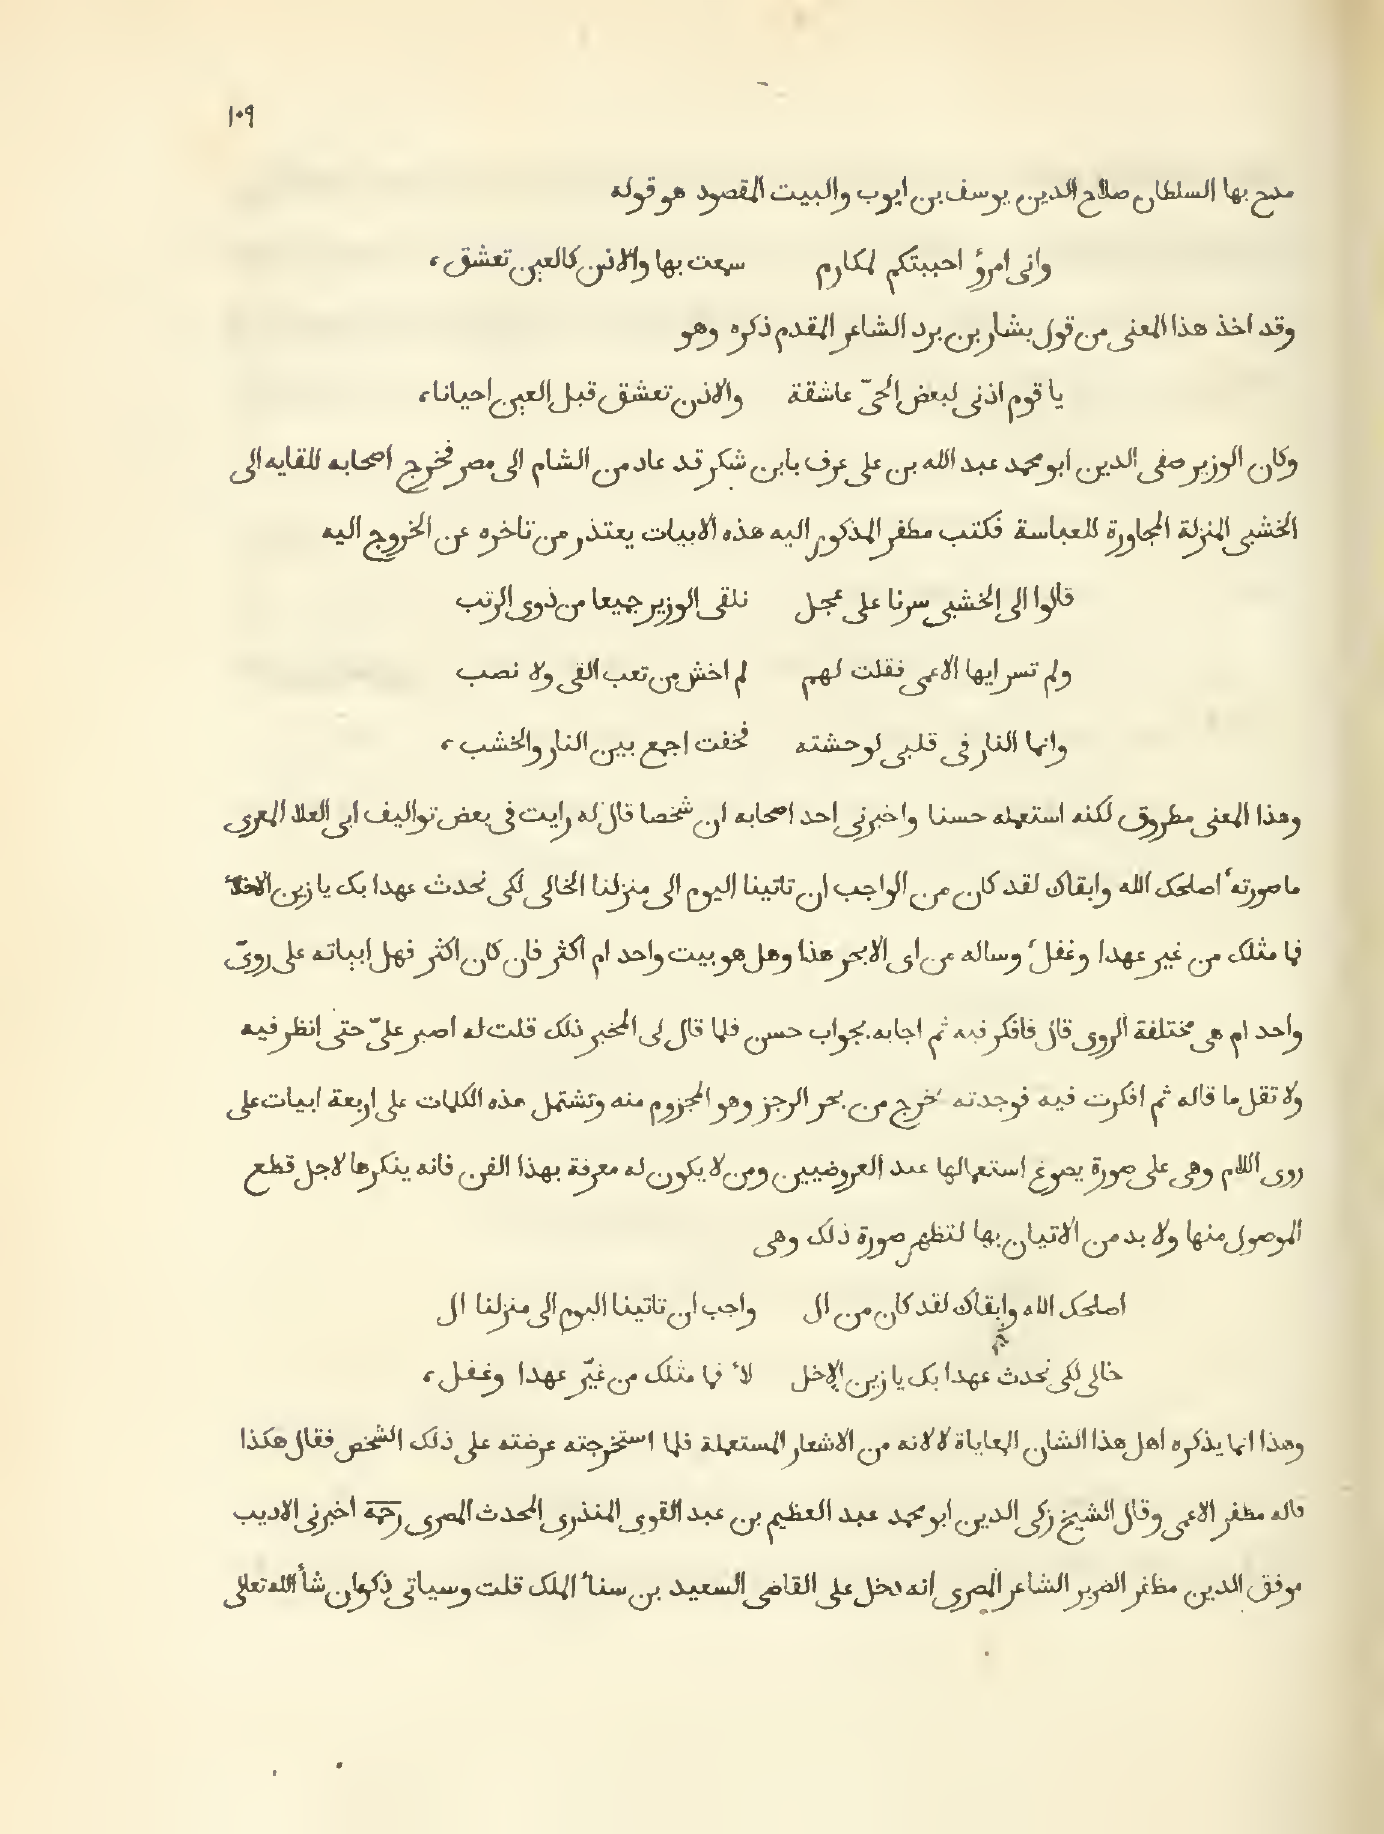 ١٠٩
مدح بها السلطان صلاح الدين يوسف بن ايوب والبيت المقصود هو قوله
وانى امرؤ احببتكم لمكارم سمعت بها والاذن كالعين تعشق،
وقد اخذ هذا المعنى من قول بشار بن برد الشاعر المقدم ذكره وهو
يا قوم اذنى لبعض الحىّ عاشقة والاذن تعشق قبل العين احيانا،
وكان الوزير صفى الدين ابو محمد عبد الله بن على عرف بابن شكر قد عاد من الشام الى مصر فخرج اصحابه للقايه الى
الخشبى المنزلة المجاورة للعباسة فكتب مظفر المذكور اليه هذه الابيات يعتذر من تاخره عن الخروج اليه
قالوا الى الخشبى سرنا على عجل نلقى الوزير جميعا من ذوى الرتب
ولم تسر ايها الاعمى فقلت لهم لم اخش من تعب القى ولا نصب
وانما النار فى قلبى لوحشته فخفت اجمع بين النار والخشب،
وهذا المعنى مطروق لكنه استعمله حسنا واخبرنى احد اصحابه ان شخصا قال له رايت فى بعض تواليف ابى العلا المعرى
ما صورته ُ اصلحك الله وابقاك لقد كان من الواجب ان تاتينا اليوم الى منزلنا الخالى لكى نحدث عهدا بك يا زين الاخلّاء
فما مثلك من غير عهدا وغفل ُ وساله من اى الابحر هذا وهل هو بيت واحد ام اكثر فان كان اكثر فهل ابياته على روىّ
واحد ام هى مختلفة الروى قال فافكر فيه ثم اجابه بجواب حسن فلما قال لى المخبر ذلك قلت له اصبر علىّ حتى انظر فيه
ولا تقل ما قاله ثم افكرت فيه فوجدته يخرج من بحر الرجز وهو المجزوم منه وتشتمل هذه الكلمات على اربعة ابيات على
روى اللام وهى على صورة يصوغ استعمالها عند العروضيين ومن لا يكون له معرفة بهذا الفن فانه ينكرها لاجل قطع
الموصول منها ولا بد من الاتيان بها لتظهر صورة ذلك وهى
اصلحك الله وابقاك لقد كان من ال واجب ان تاتينا اليوم الى منزلنا ال
خالى لكى نحدث عهدا بك يا زين الاخل لأ فما مثلك من غيّر عهدا وغفل،
وهذا انما يذكره اهل هذا الشان للمعاياة لا لانه من الاشعار المستعملة فلما استخرجته عرضته على ذلك الشخص فقال هكذا
قاله مظفر الاعمى وقال الشيخ زكى الدين ابو محمد عبد العظيم بن عبد القوى المنذرى المحدث المصرى رحمه اخبرنى الاديب
موفق الدين مظفر الضرير الشاعر المصرى انه دخل على القاضى السعيد بن سناء الملك قلت وسياتى ذكره ان شأ الله تعالى